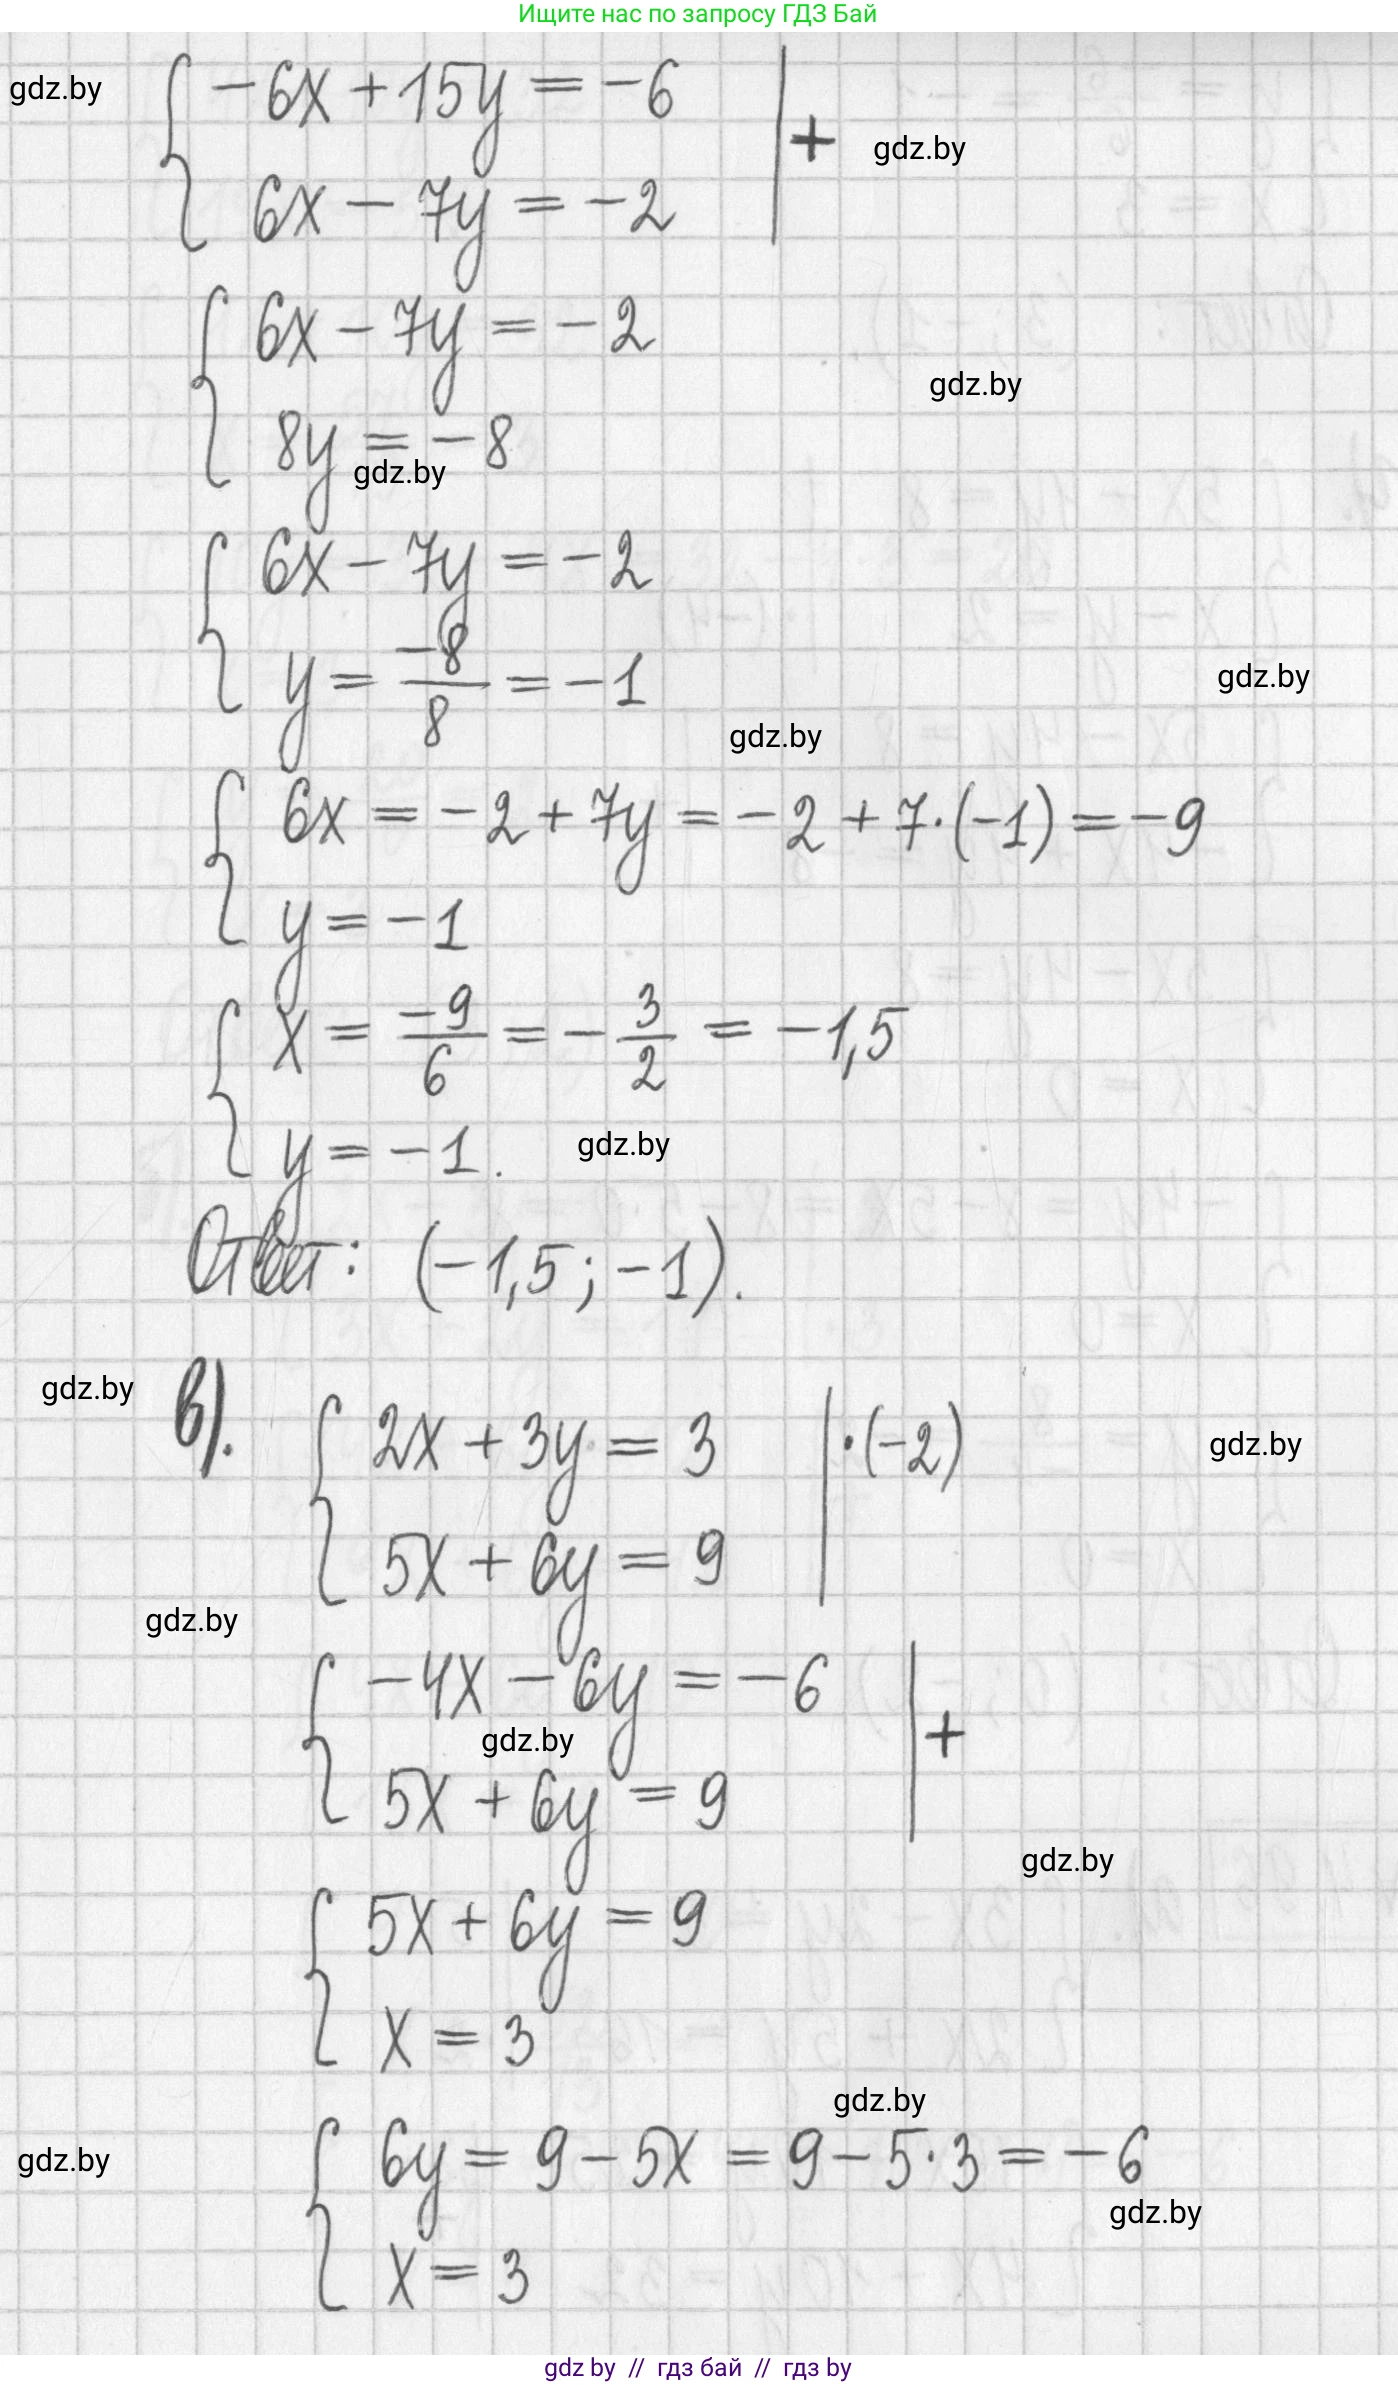 Ищите нас по запросу ГДЗ Бай
gdz.by
-6x + 15y = -6 | +
gdz.by
6x - 7y = -2
6x - 7y = -2
gdz.by
8y = -8
gdz.by
6x - 7y = -2
y = -8/8 = -1
gdz.by
gdz.by
6x = -2 + 7y = -2 + 7·(-1) = -9
y = -1
x = -9/6 = -3/2 = -1,5
y = -1.
gdz.by
Ответ: (-1,5; -1).
gdz.by
в). 2x + 3y = 3 | ·(-2)
gdz.by
5x + 6y = 9
gdz.by
-4x - 6y = -6 | +
gdz.by
5x + 6y = 9
gdz.by
5x + 6y = 9
x = 3
gdz.by
gdz.by
6y = 9 - 5x = 9 - 5·3 = -6
gdz.by
x = 3
gdz by // гдз бай // гдз by